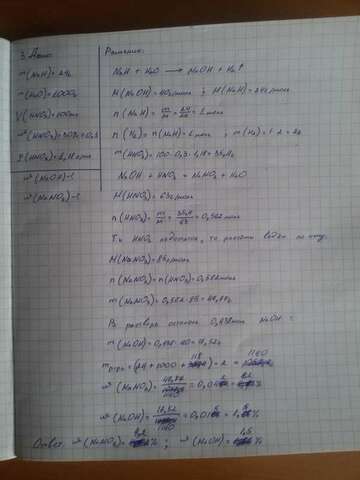 3. Дано:
m(NaH)=24г
m(H₂O)=1000г
V(HNO₃)=100мл
ω(HNO₃)=30%=0,3
ρ(HNO₃)=1,18г/мл
ω(NaOH)-?
ω(NaNO₃)-?
Решение:
NaH + H₂O → NaOH + H₂↑
M(NaOH)=40г/моль ; M(NaH)=24г/моль
n(NaH)=m/M=24/24=1моль
n(H₂)=n(NaH)=1моль ; m(H₂)=1·2=2г
m(HNO₃)=100·0,3·1,18=35,4г
NaOH + HNO₃ = NaNO₃ + H₂O
M(HNO₃)=63г/моль
n(HNO₃)=m/M=35,4/63=0,562моль
Т.к HNO₃ недостаток, то расчеты ведем по нему.
M(NaNO₃)=85г/моль
n(NaNO₃)=n(HNO₃)=0,562моль
m(NaNO₃)=0,562·85=47,77г
В растворе осталось 0,438моль NaOH =
m(NaOH)=0,438·40=17,52г
=(24+1000+118)-2=1140
ω(NaNO₃)= /1140=0,04 = %
ω(NaOH)=17,52/1140=0,015=1,5%
Ответ: ω(NaNO₃)=4,2% ; ω(NaOH)=1,5%